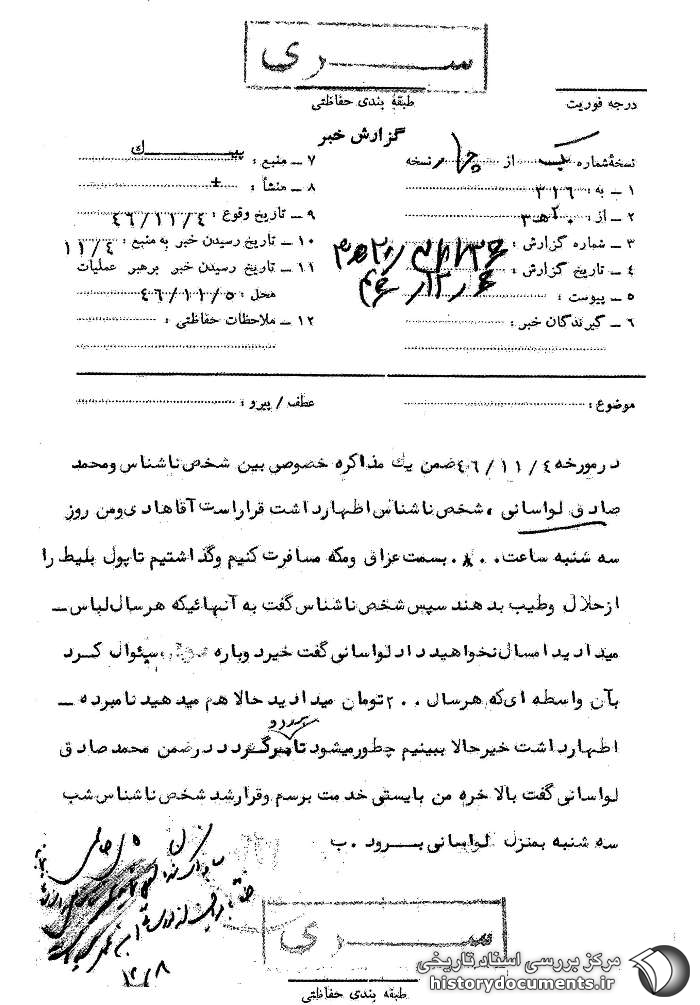 سری
طبقه بندی حفاظتی
درجه فوریت
گزارش خبر
نسخه شماره یک از چهار نسخه
۱ ــ به : ۳۱۶
۲ ــ از : ۲۰ ه ۳
۳ ــ شماره گزارش :
۴ ــ تاریخ گزارش :
۵ ــ پیوست :
۶ ــ گیرندگان خبر :
۷ ــ منبع : پیــک
۸ ــ منشأ : +
۹ ــ تاریخ وقوع : ۴۶/۱۱/۴
۱۰ ــ تاریخ رسیدن خبر به منبع : ۱۱/۴
۱۱ ــ تاریخ رسیدن خبر برهبر عملیات
محل : ۴۶/۱۱/۵
۱۲ ــ ملاحظات حفاظتی :
موضوع :
عطف / پیرو :
درمورخه ۴۶/۱۱/۴ ضمن یك مذاکره خصوصی بین شخص ناشناس ومحمد
صادق لواسانی ، شخص ناشناس اظهارداشت قراراست آقاهادی ومن روز
سه شنبه ساعت ۸۰۰ بسمت عراق ومکه مسافرت کنیم وگذاشتیم تاپول بلیط را
ازحلال وطیب بدهند سپس شخص ناشناس گفت به آنهائیکه هرسال لباس ــ
میدادیدامسال نخواهیدداد لواسانی گفت خیرد وباره سئوال کرد
بآن واسطه ای که هرسال ۲۰۰ تومان میدادید حالا هم میدهید نامبرده ــ
اظهارداشت خیرحالا ببینیم چطورمیشود تا برگردد درضمن محمد صادق
لواسانی گفت بالاخره من بایستی خدمت برسم وقرارشد شخص ناشناس شب
سه شنبه بمنزل لواسانی بــرود . ب
۱۲/۸
سری
طبقه بندی حفاظتی
مرکز بررسی اسناد تاریخی
historydocuments.ir